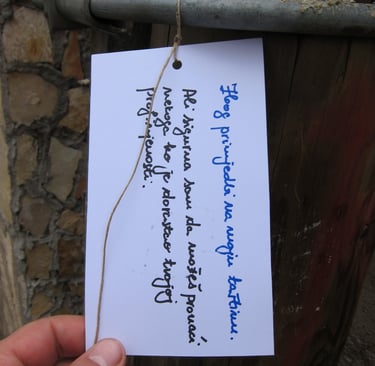 Zbog primjedbi na moju taštinu.
Ali sigurna sam da možeš pronaći
nekoga ko je dorastao tvojoj
promjenjenosti.